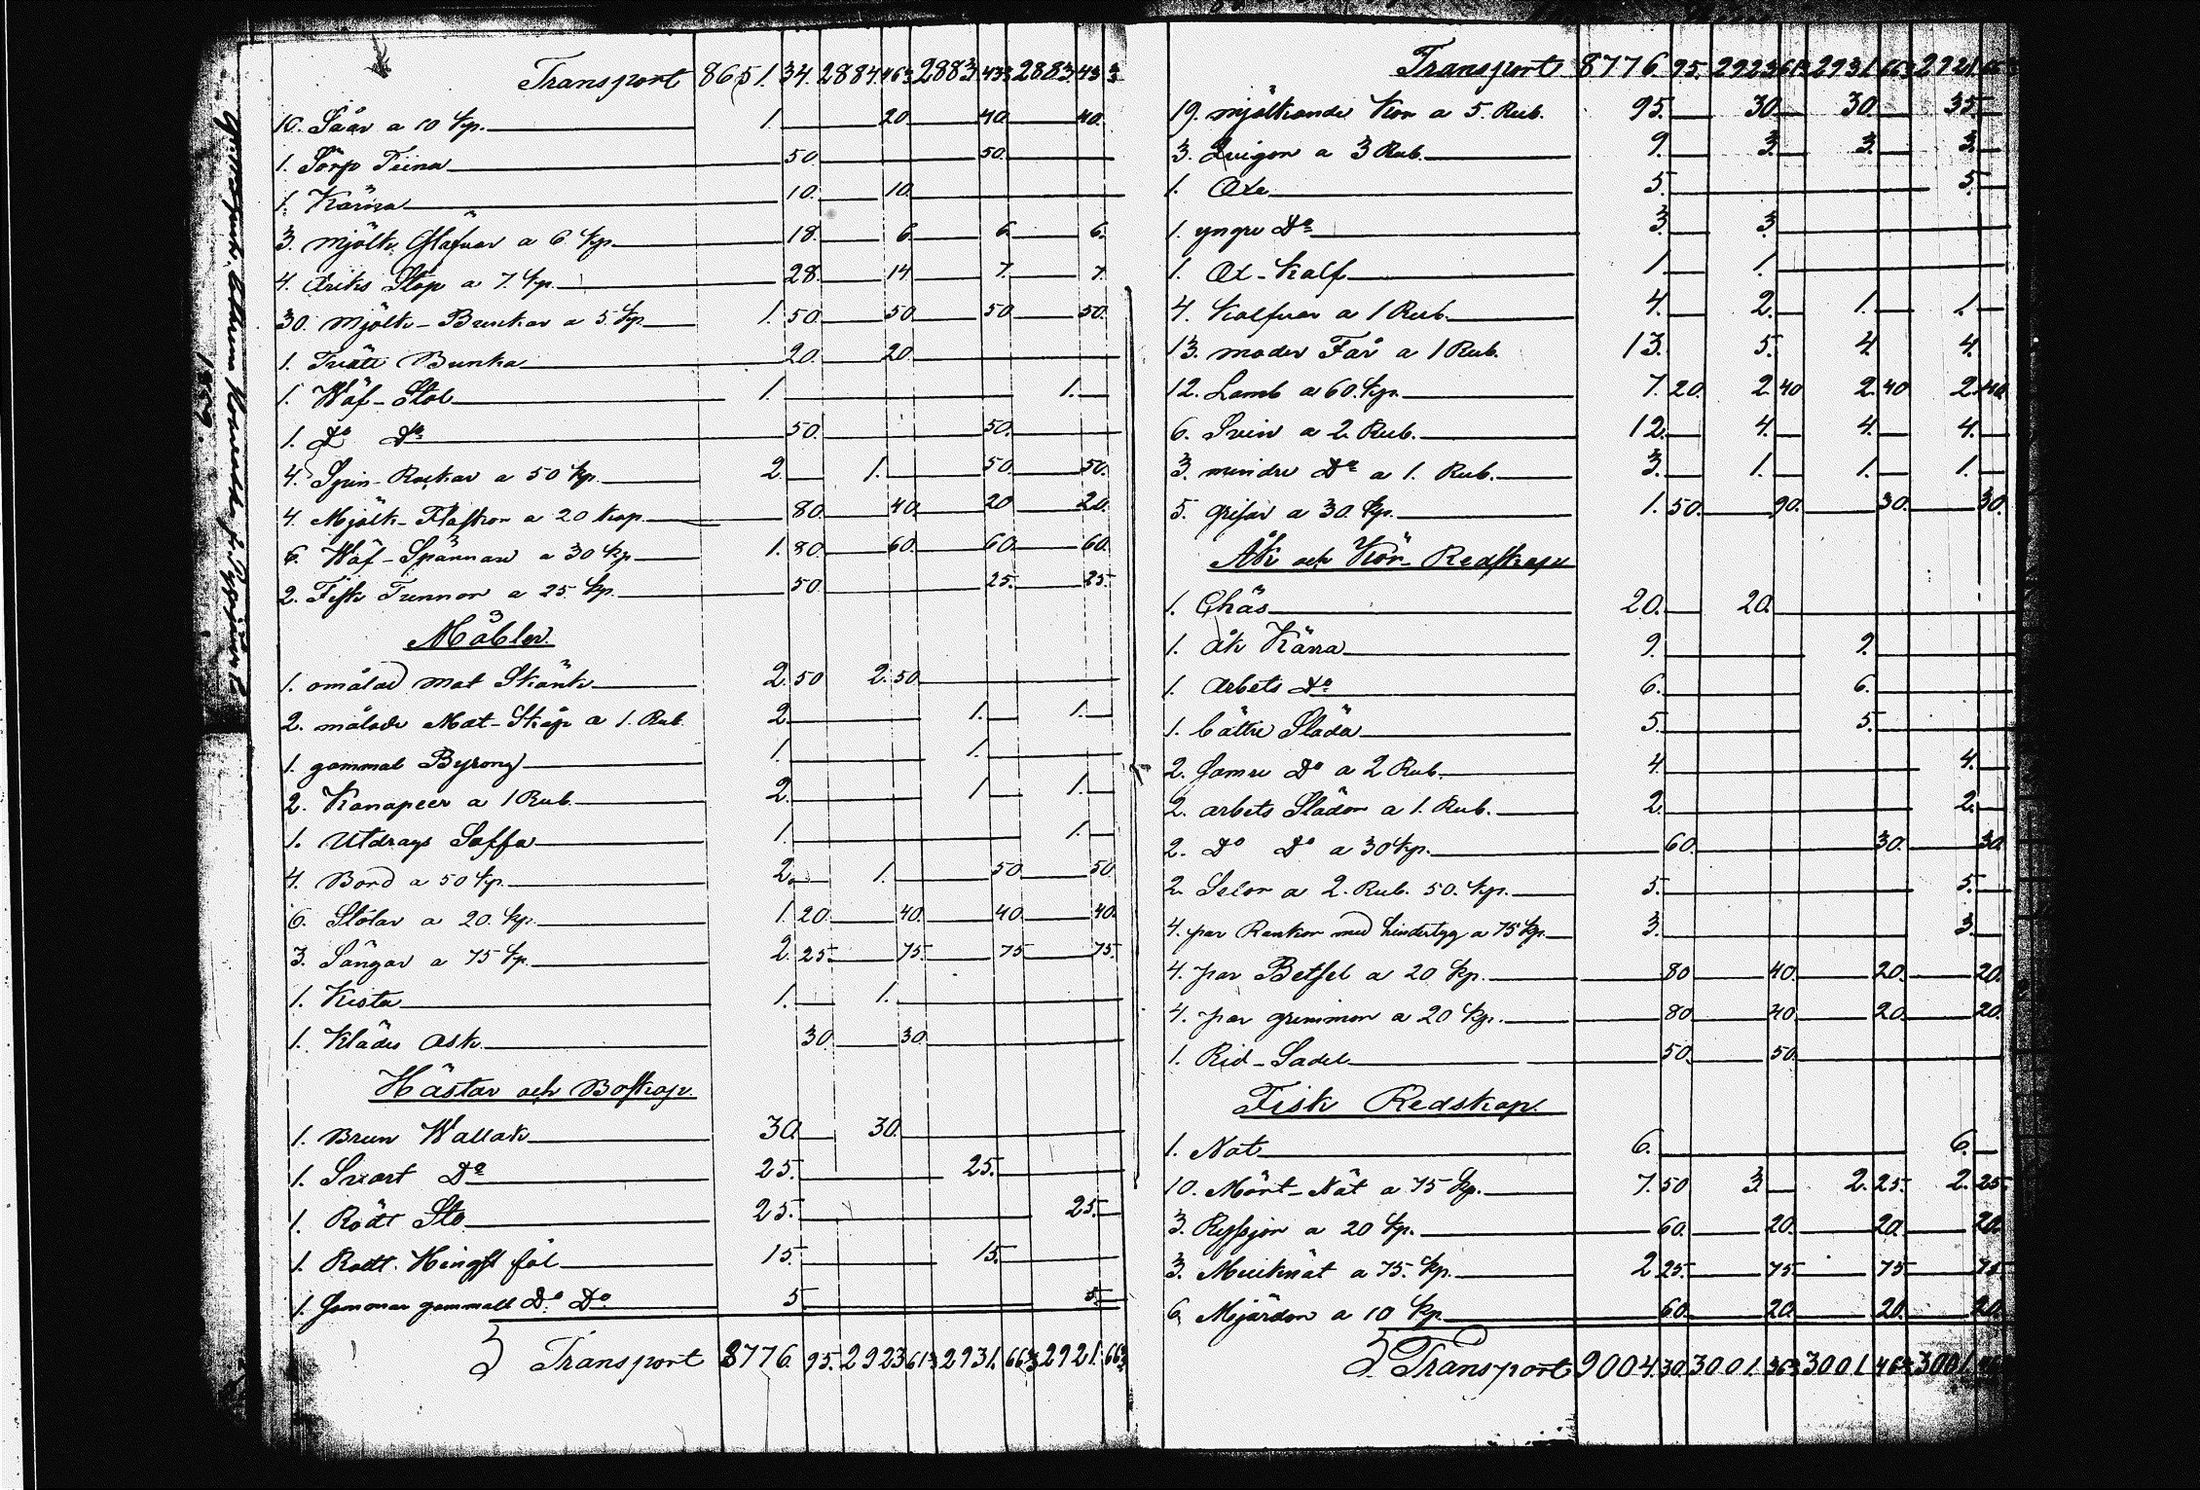 Transport 8651. 34. 2884. 463 2883. 433 2883. 43 3
10. Såar a 10 kp. 1. 20 40 40.
1. Sörp Tiina 50. 50.
1. Kärna 10. 10.
3. Mjölk Stäfvar a 6 kp 18. 6. 6 6.
4. Driks Stop a 7. kp. 28. 14 7. 7.
30. Mjölk-Bunkar a 5 kp 1. 50. 50 50 50.
1. Tvätt Bunka 20. 20.
1. Wäf-Stol 1. 1.
1. Do Do 50. 50.
4. Spin-Rockar a 50 kp. 2. 1. 50. 50.
4. Mjölk-Flaskor a 20 kop. 80. 40. 20 20.
6. Wäf-Spännare a 30 kp 1. 80. 60. 60. 60.
2. Fisk Tunnor a 25 kp. 50 25. 25.
Möbler.
1. omålad mat Skänk 2. 50 2. 50.
2. målade Mat-Skåp a 1. Rub. 2. 1. 1.
1. gammal Byrong 1. 1.
2. Kanapeer a 1 Rub. 2. 1 1.
1. Utdrags Soffa 1. 1.
4. Bord a 50 kp. 2. 1. 50 50
6. Stolar a 20. kp. 1. 20. 40. 40. 40.
3. Sängar a 75 kp. 2. 25. 75. 75 75.
1. Kista 1. 1.
1. Klädes Ask 30. 30.
Hästar och Boskap.
1. Brun Wallak 30. 30.
1. Svart Do 25. 25.
1. Rödt Sto 25. 25.
1. Rödt. Hingst föl 15. 15.
1. Somonar gammalt Do Do 5 5.
Transport 8776. 95. 2923 613 2931. 663 2921. 663
Transport 8776 95. 2923 613 2931. 663 2921. 663
19. mjölkande Kor a 5. Rub. 95. 30. 30. 35.
3. Qvigor a 3 Rub. 9. 3. 3. 3.
1. Oxe 5. 5.
1. yngre Do 3. 3.
1. Ox-Kalf 1. 1.
4. Kalfvar a 1 Rub. 4. 2. 1. 1.
13. moder Får a 1 Rub. 13. 5. 4. 4.
12. Lamb a 60. kp. 7. 20. 2. 40 2. 40 2. 40.
6. Svin a 2. Rub. 12. 4. 4. 4.
3. mindre Do a 1. Rub. 3. 1. 1. 1.
5. grisar a 30. kp. 1. 50. 90. 30. 30.
Åk och Kör-Redskap
1. Chäs 20. 20.
1. åk Kärra 9. 9.
1. Arbets Do 6. 6.
1. bättre Släda 5. 5.
2. Samre Do a 2 Rub. 4. 4.
2. arbets Slädor a 1. Rub. 2. 2.
2. Do Do a 30 kp. 60. 30. 30
2. Selor a 2. Rub. 50. kp. 5. 5.
4. par Rankor med hindertyg a 75 kp. 3. 3.
4. par Betsel a 20 kp. 80 40. 20. 20.
4. par grimmor a 20 kp. 80 40. 20. 20.
1. Rid-Sadel 50. 50.
Fisk Redskap.
1. Not 6. 6.
10. Mört-Nät a 75 kp. 7. 50 3. 2. 25. 2. 25.
3. Ryssjor a 20 kp. 60. 20. 20. 20.
3. Muiknät a 75. kp. 2 25. 75. 75 75
6. Mjärdor a 10 kp 60. 20. 20. 20.
Transport 9004. 30. 3001. 363 3001. 463 3001.